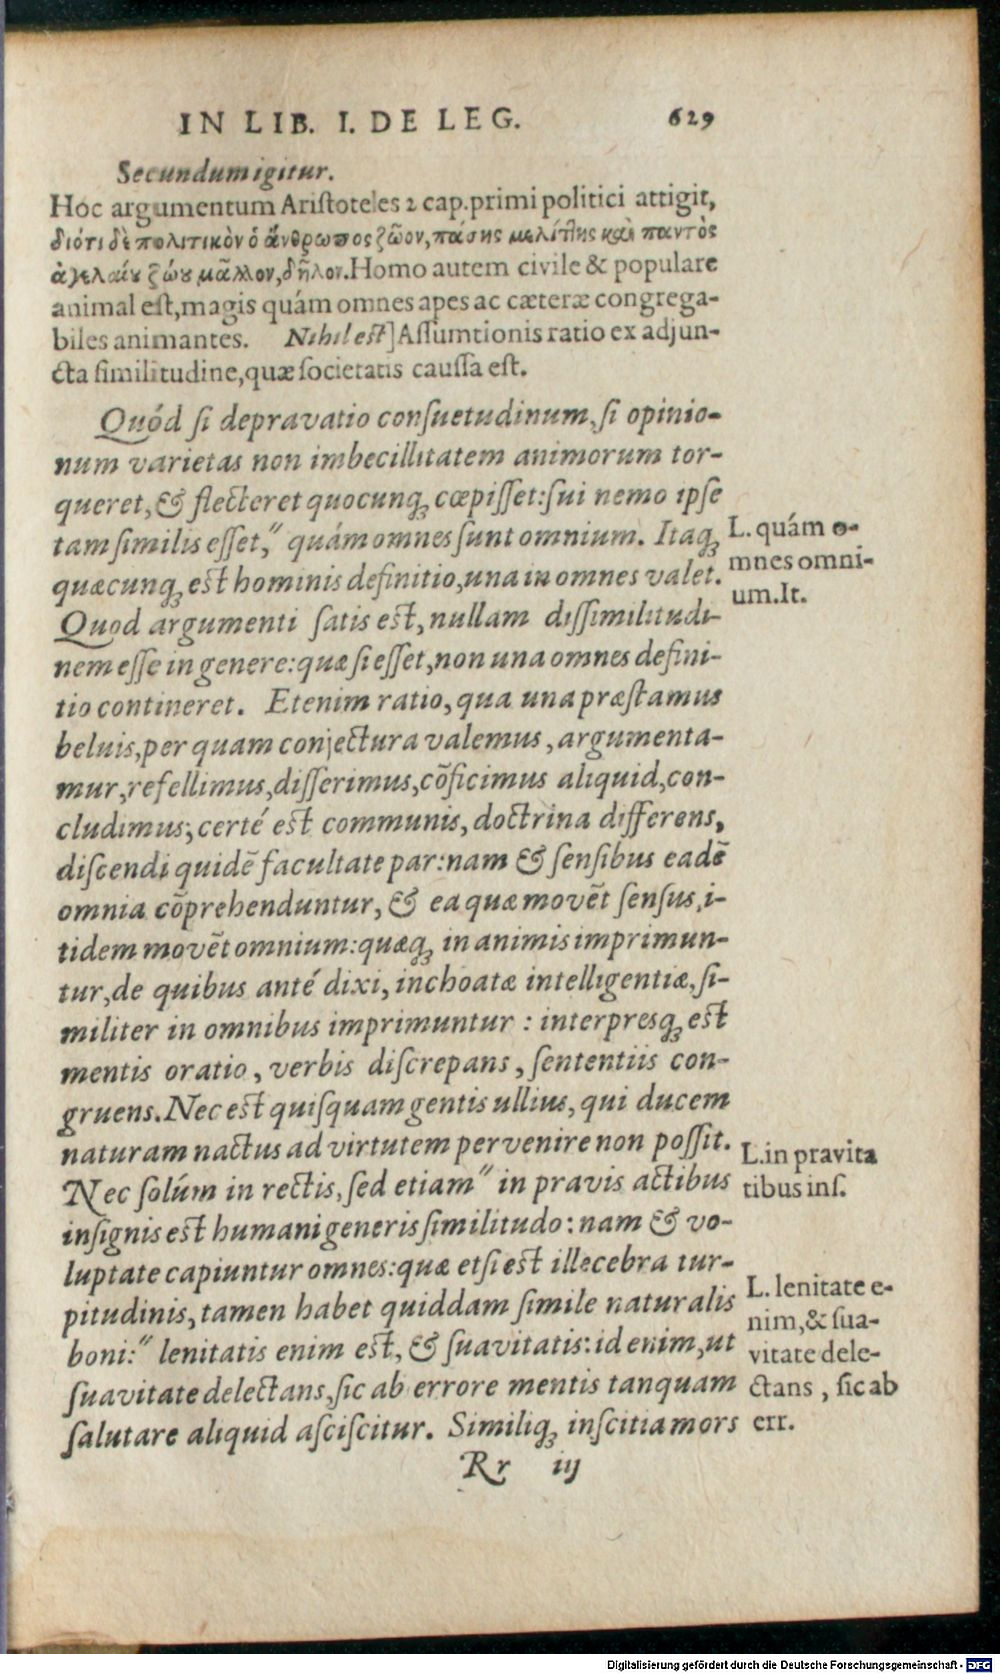 IN LIB. I. DE LEG. 629
Secundum igitur.
Hoc argumentum Aristoteles 2 cap. primi politici attigit,
διότι δὲ πολιτικὸν ὁ ἄνθρωπος ζῶον, πάσης μελίτης καὶ παντὸς
ἀγελαίου ζώου μᾶλλον, δῆλον. Homo autem civile & populare
animal est, magis quám omnes apes ac cæteræ congrega-
biles animantes. Nihil est] Assumtionis ratio ex adjun-
cta similitudine, quæ societatis caussa est.
Quód si depravatio consuetudinum, si opinio-
num varietas non imbecillitatem animorum tor-
queret, & flecteret quocunq; cœpisset: sui nemo ipse
tam similis esset,″ quám omnes sunt omnium. Itaq;
quæcunq; est hominis definitio, una in omnes valet.
Quod argumenti satis est, nullam dissimilitudi-
nem esse in genere: quæ si esset, non una omnes defini-
tio contineret. Etenim ratio, qua una præstamus
beluis, per quam conjectura valemus, argumenta-
mur, refellimus, disserimus, cōficimus aliquid, con-
cludimus; certé est communis, doctrina differens,
discendi quidē facultate par: nam & sensibus eadē
omnia cōprehenduntur, & ea quæ movēt sensus, i-
tidem movēt omnium: quæq; in animis imprimun-
tur, de quibus anté dixi, inchoatæ intelligentiæ, si-
militer in omnibus imprimuntur: interpresq; est
mentis oratio, verbis discrepans, sententiis con-
gruens. Nec est quisquam gentis ullius, qui ducem
naturam nactus ad virtutem pervenire non possit.
Nec solúm in rectis, sed etiam″ in pravis actibus
insignis est humani generis similitudo: nam & vo-
luptate capiuntur omnes: quæ etsi est illecebra tur-
pitudinis, tamen habet quiddam simile naturalis
boni:″ lenitatis enim est, & suavitatis: id enim, ut
suavitate delectans, sic ab errore mentis tanquam
salutare aliquid asciscitur. Similiq; inscitia mors
Rr iij
L. quám o-
mnes omni-
um. It.
L. in pravita
tibus ins.
L. lenitate e-
nim, & sua-
vitate dele-
ctans, sic ab
err.
Digitalisierung gefördert durch die Deutsche Forschungsgemeinschaft - DFG